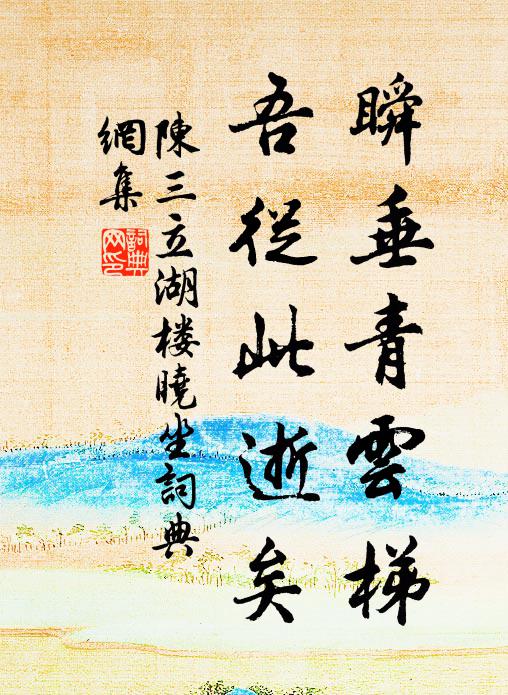 瞬垂青雲梯
吾從此逝矣
陳三立湖楼曉坐詞典
網集
詞典
网印